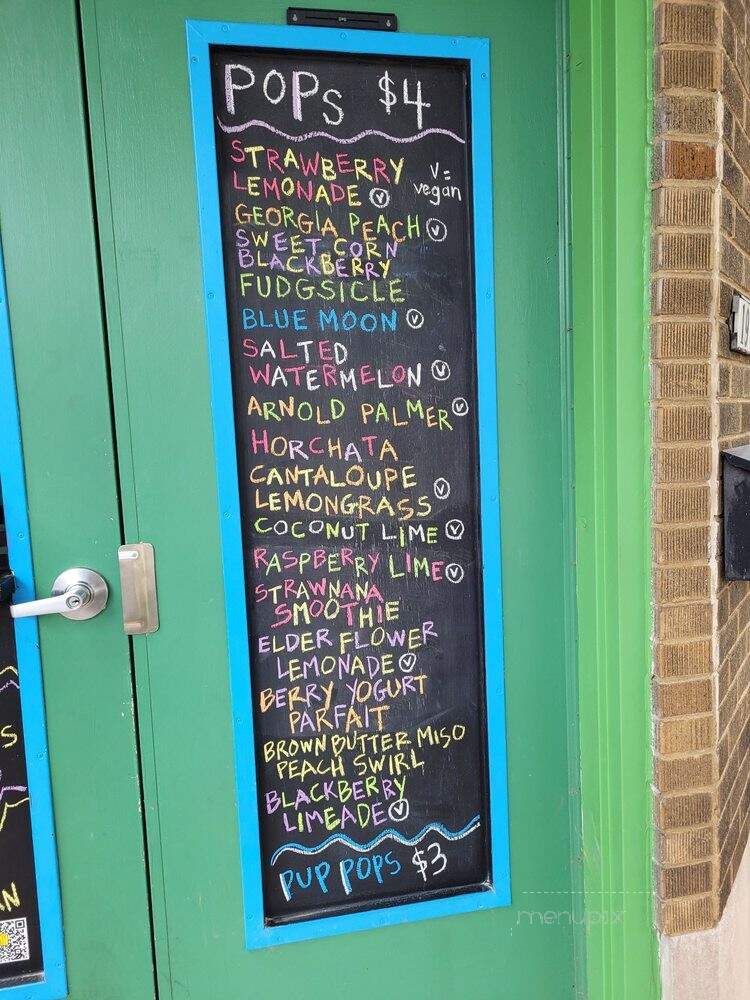 POPS $4
STRAWBERRY
LEMONADE Ⓥ
V = vegan
GEORGIA PEACH Ⓥ
SWEET CORN
BLACKBERRY
FUDGSICLE
BLUE MOON Ⓥ
SALTED
WATERMELON Ⓥ
ARNOLD PALMER Ⓥ
HORCHATA
CANTALOUPE
LEMONGRASS Ⓥ
COCONUT LIME Ⓥ
RASPBERRY LIME Ⓥ
STRAWNANA
SMOOTHIE
ELDER FLOWER
LEMONADE Ⓥ
BERRY YOGURT
PARFAIT
BROWN BUTTER MISO
PEACH SWIRL
BLACKBERRY
LIMEADE Ⓥ
PUP POPS $3
S
AN
menupix